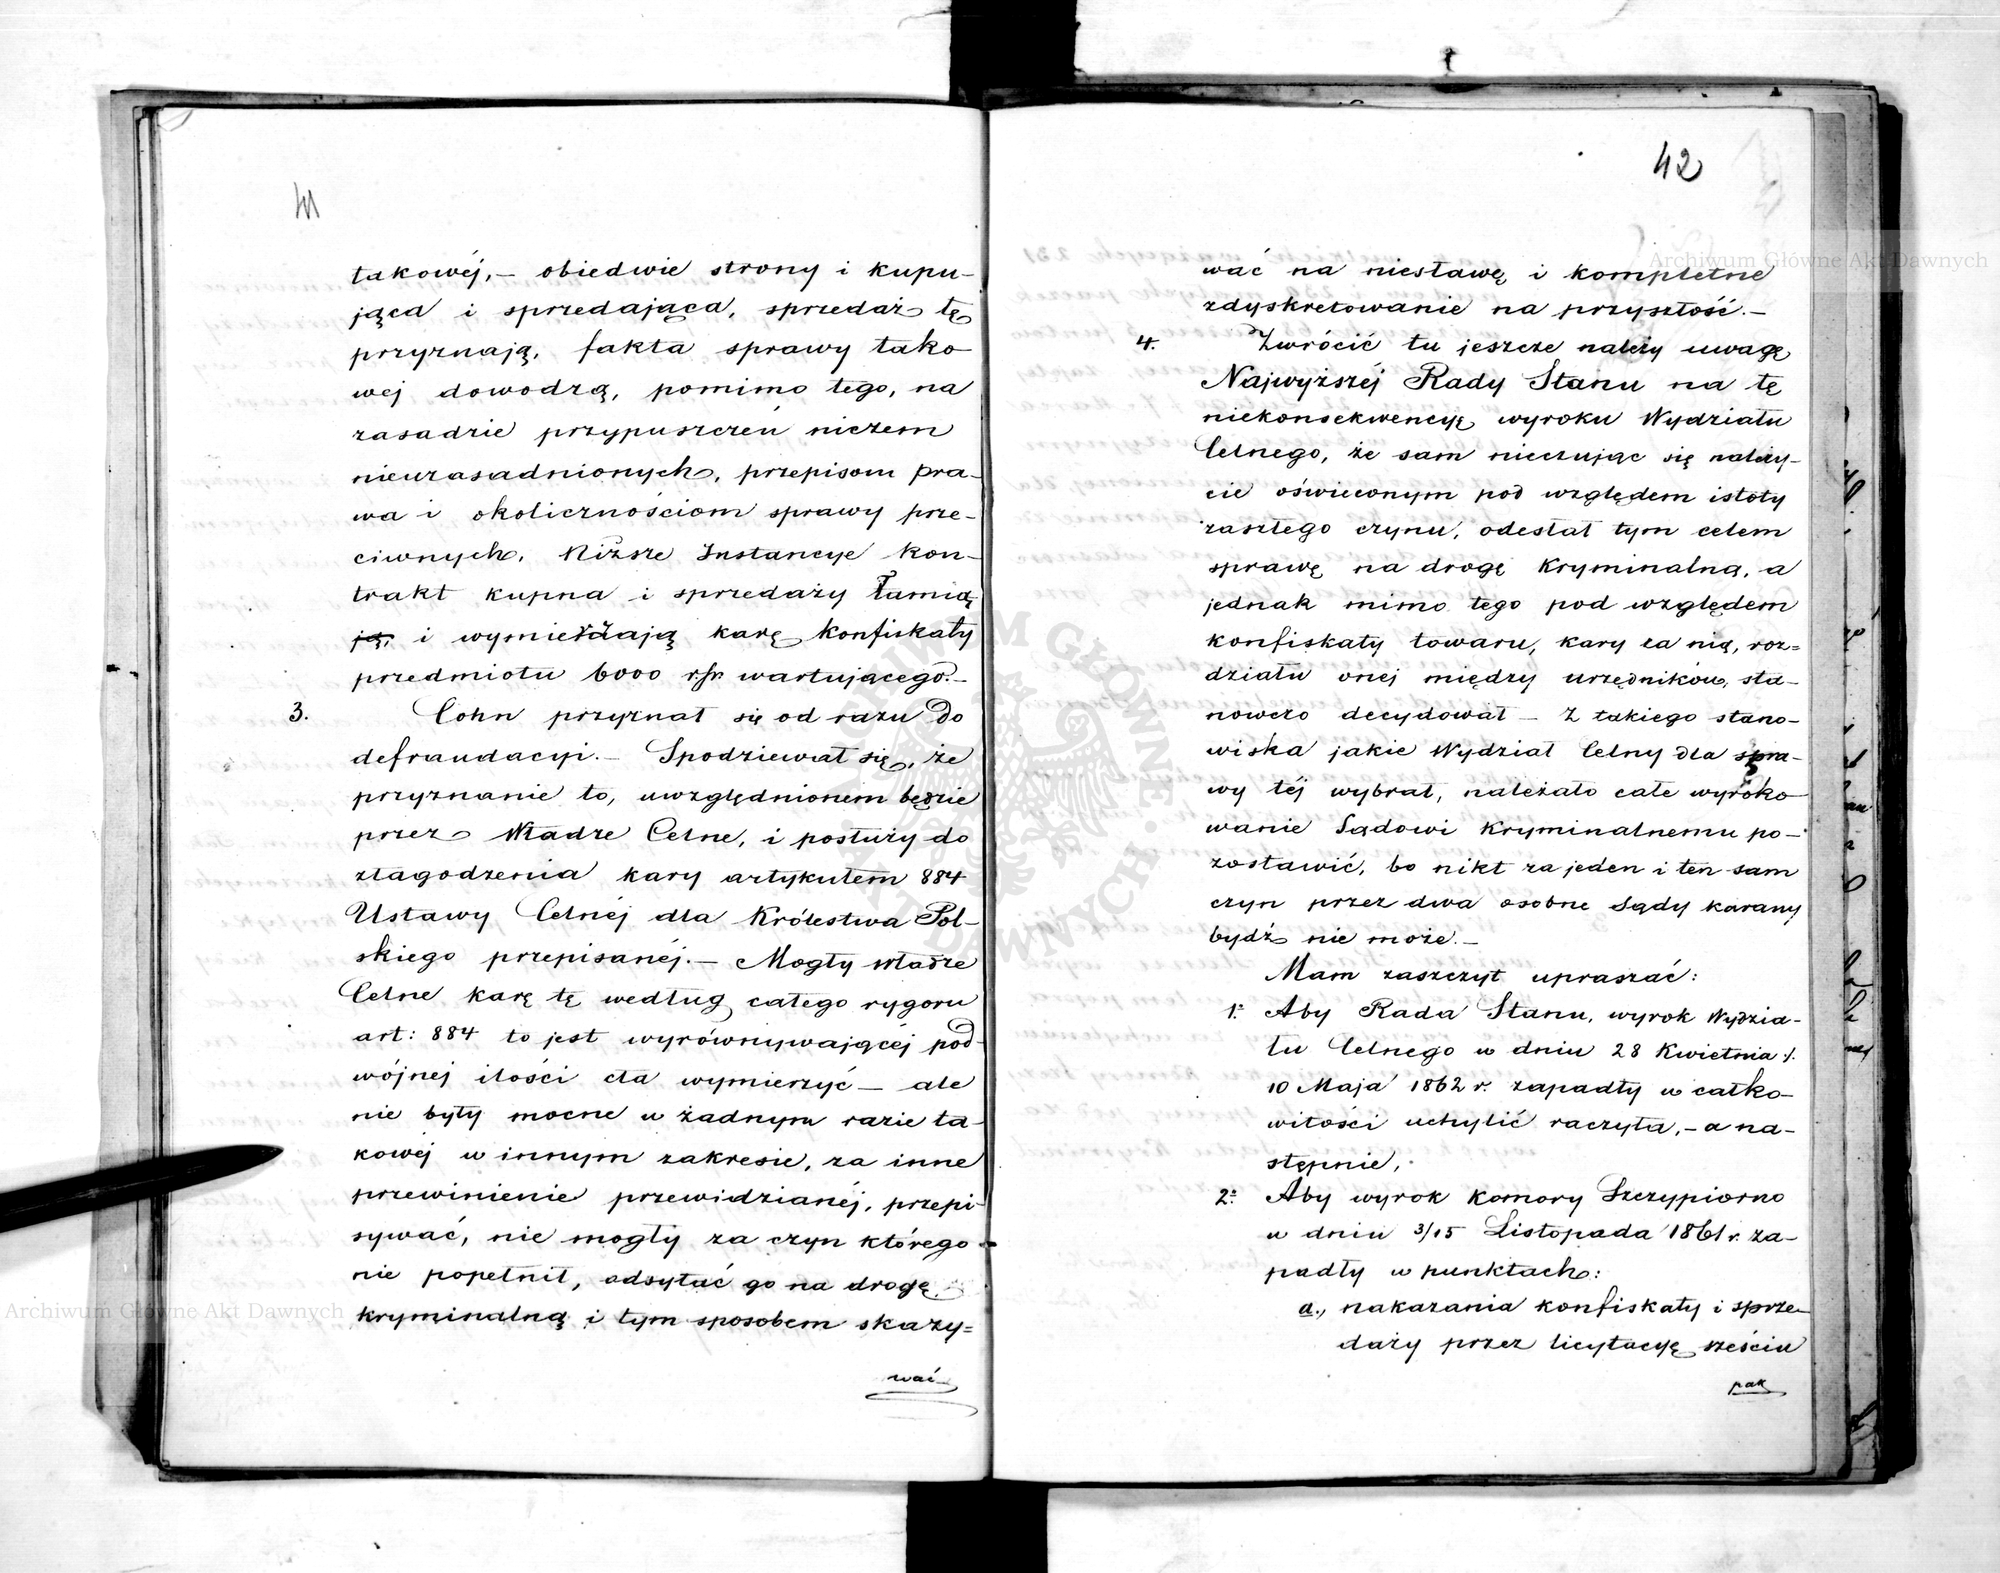 41
takowéj, — obiedwie strony i kupu-
jąca i sprzedająca, sprzedaż tę
przyznają, fakta sprawy tako
wej dowodzą, pomimo tego, na
zasadzie przypuszczeń niczem
nieuzasadnionych, przepisom pra-
wa i okolicznościom sprawy prze-
ciwnych, Niższe Instancye kon-
trakt kupna i sprzedaży łamią
ją, i wymierzają karę Konfiskaty
przedmiotu 6000 rsr. wartującego. —
3. Cohn przyznał się od razu do
defraudacyi. — Spodziewał się, że
przyznanie to, uwzględnionem będzie
przez Władze Celne, i posłuży do
złagodzenia kary artykułem 884
Ustawy Celnéj dla Królestwa Pol-
skiego przepisanéj. — Mogły władze
Celne karę tę według całego rygoru
art: 884 to jest wyrównywającéj pod-
wójnej ilości cła wymierzyć — ale
nie były mocne w żadnym razie ta-
kowéj w innym zakresie, za inne
przewinienie przewidzianéj, przepi-
sywać, nie mogły za czyn którego
nie popełnił, odsyłać go na drogę
kryminalną i tym sposobem skazy=
wać
42
wać na niesławę i kompletne
zdyskretowanie na przyszłość. —
4. Zwrócić tu jeszcze należy uwagę
Najwyższéj Rady Stanu na tę
niekonsekwencyę wyroku Wydziału
Celnego, że sam nieczując się należy-
cie oświeconym pod względem istoty
zaszłego czynu, odesłał tym celem
sprawę na drogę Kryminalną, a
jednak mimo tego pod względem
konfiskaty towaru, kary za nią, roz=
działu onej między urzędników, sta-
nowczo decydował — Z takiego stano-
wiska jakie Wydział Celny dla spra-
wy téj wybrał, należało całe wyroko-
wanie Sądowi Kryminalnemu po-
zostawić, bo nikt za jeden i ten sam
czyn przez dwa osobne Sądy karany
bydź nie może. —
Mam zaszczyt upraszać:
1º Aby Rada Stanu, wyrok Wydzia-
łu Celnego w dniu 28 Kwietnia /.
10 Maja 1862 r. zapadły w całko-
witości uchylić raczyła, — a na-
stępnie,
2º Aby wyrok Komory Szczypiorno
w dniu 3/15 Listopada 1861 r. za-
padły w punktach:
a., nakazania konfiskaty i sprze-
daży przez licytacyę sześciu
pak
Archiwum Główne Akt Dawnych
Archiwum Główne Akt Dawnych
ARCHIWUM GŁÓWNE AKT DAWNYCH